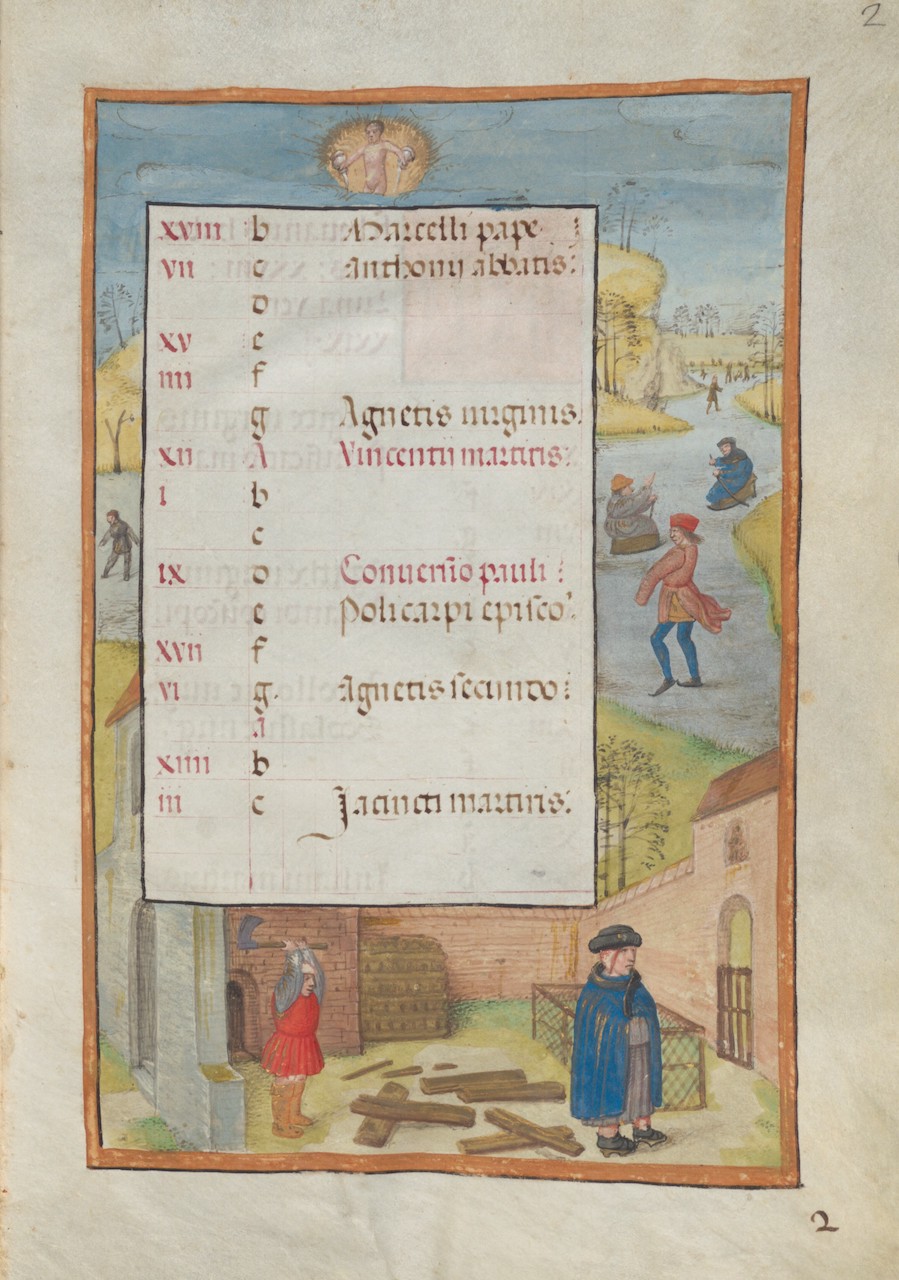 2
xviii b Marcelli pape
vii c Anthonij abbatis:
d
xv e
iiii f
g Agnetis uirginis.
xii A Vincentii martiris:
i b
c
ix d Conuersio pauli:
e Policarpi episco'
xvii f
vi g. Agnetis secundo:
A
xiiii b
iii c Jacincti martiris:
2